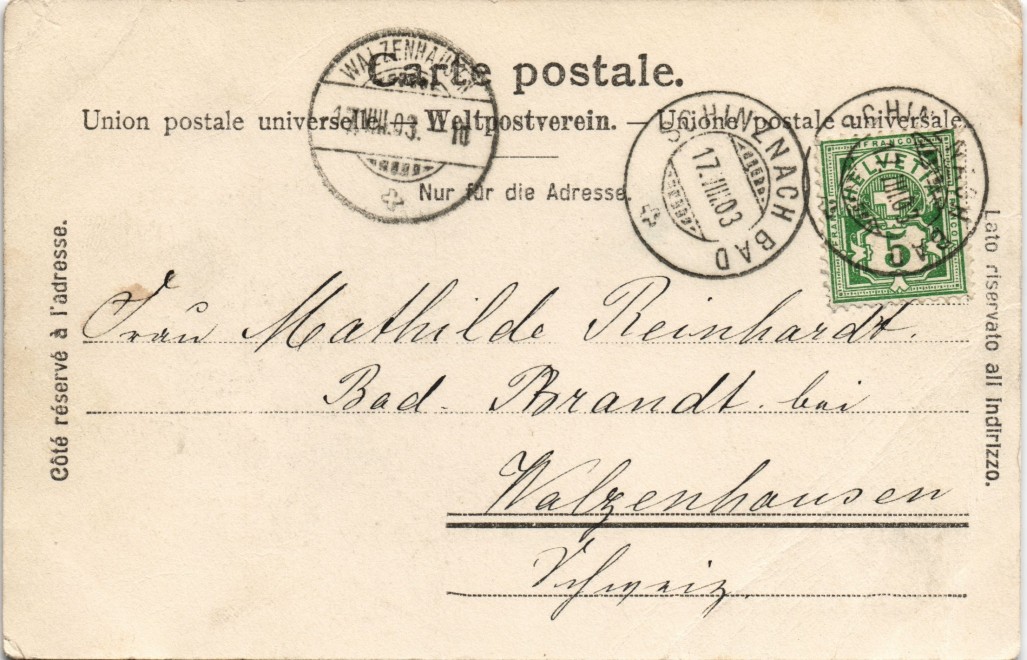 Carte postale.
Union postale universelle. — Weltpostverein. — Unione postale universale.
Nur für die Adresse.
WALZENHAUSEN
17.VIII.03. 10
SCHINZNACH BAD
17.VIII.03
SCHINZNACH BAD
FRANCO
HELVETIA
5
Côté réservé à l'adresse.
Lato riservato all indirizzo.
Frau Mathilde Reinhardt.
Bad. Brandt. bei
Walzenhausen
Schweiz.